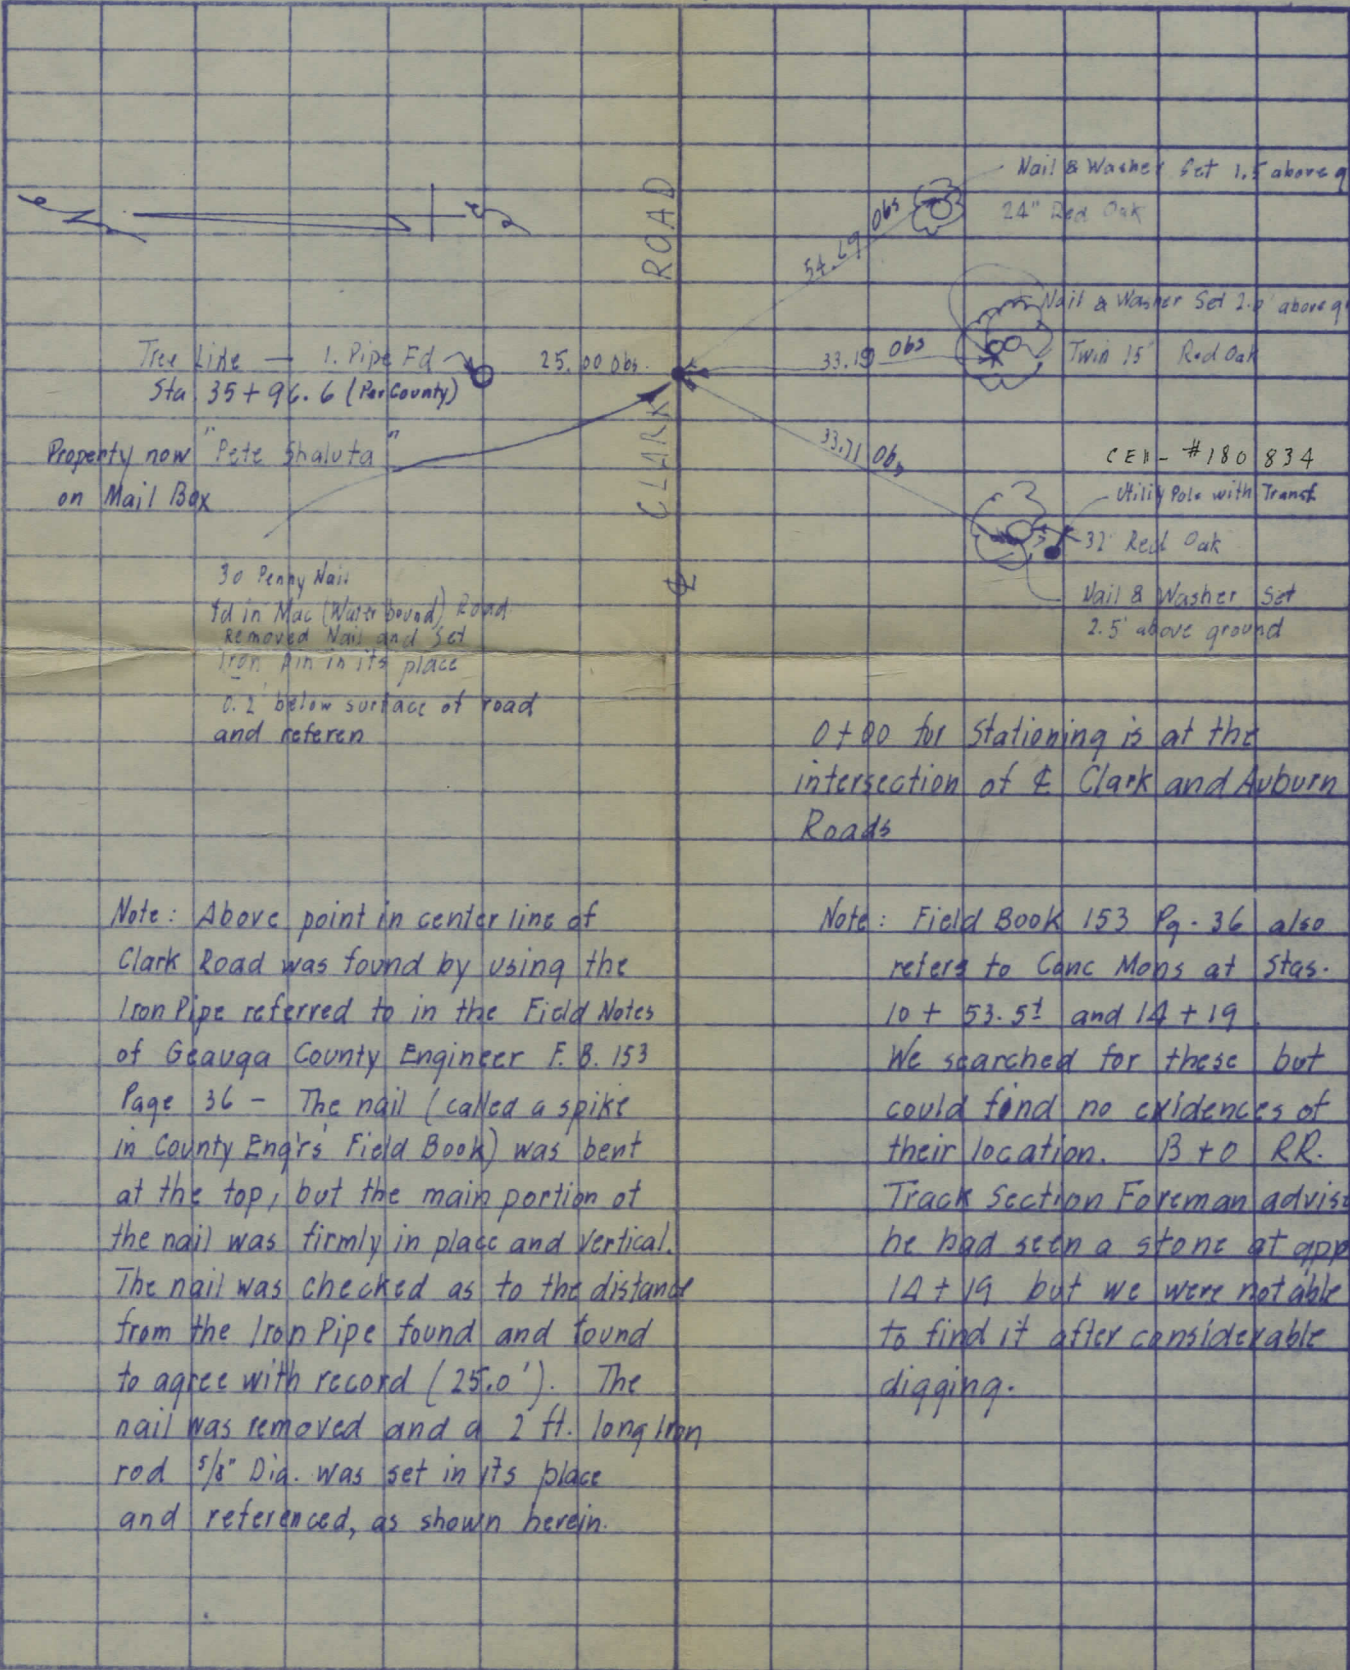 Nail & Washer Set 1.5 above g
24" Red Oak
54.69 Obs
ROAD
Nail & Washer Set 2.0' above g
Twin 15" Red Oak
33.19 Obs
Tree Line — I. Pipe Fd
25.00 Obs.
Sta. 35+96.6 (Per County)
33.71 Obs
CLARK
Property now "Pete Shaluta"
on Mail Box
CEI - #180 834
Utility Pole with Transf.
32" Red Oak
Nail & Washer Set
2.5' above ground
30 Penny Nail
fd in Mac (Water bound) Road
Removed Nail and Set
Iron Pin in its place
0.2' below surface of road
and referen
℄
0+00 for Stationing is at the
intersection of ℄ Clark and Auburn
Roads
Note: Above point in center line of
Clark Road was found by using the
Iron Pipe referred to in the Field Notes
of Geauga County Engineer F.B. 153
Page 36 - The nail (called a spike
in County Engr's Field Book) was bent
at the top, but the main portion of
the nail was firmly in place and vertical.
The nail was checked as to the distance
from the Iron Pipe found and found
to agree with record (25.0'). The
nail was removed and a 2 ft. long Iron
rod 5/8" Dia. was set in its place
and referenced, as shown herein.
Note: Field Book 153 Pg. 36 also
refers to Conc Mons at Stas.
10 + 53.5± and 14 + 19.
We searched for these but
could find no evidences of
their location. B + O RR.
Track Section Foreman advise
he had seen a stone at app
14 + 19 but we were not able
to find it after considerable
digging.